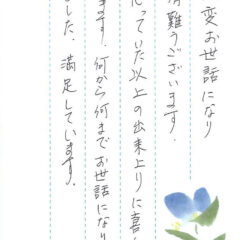 変お世話になり
有難うございます．
思っていた以上の出来上りに喜ん
ます．何から何までお世話になり
した、満足しています．